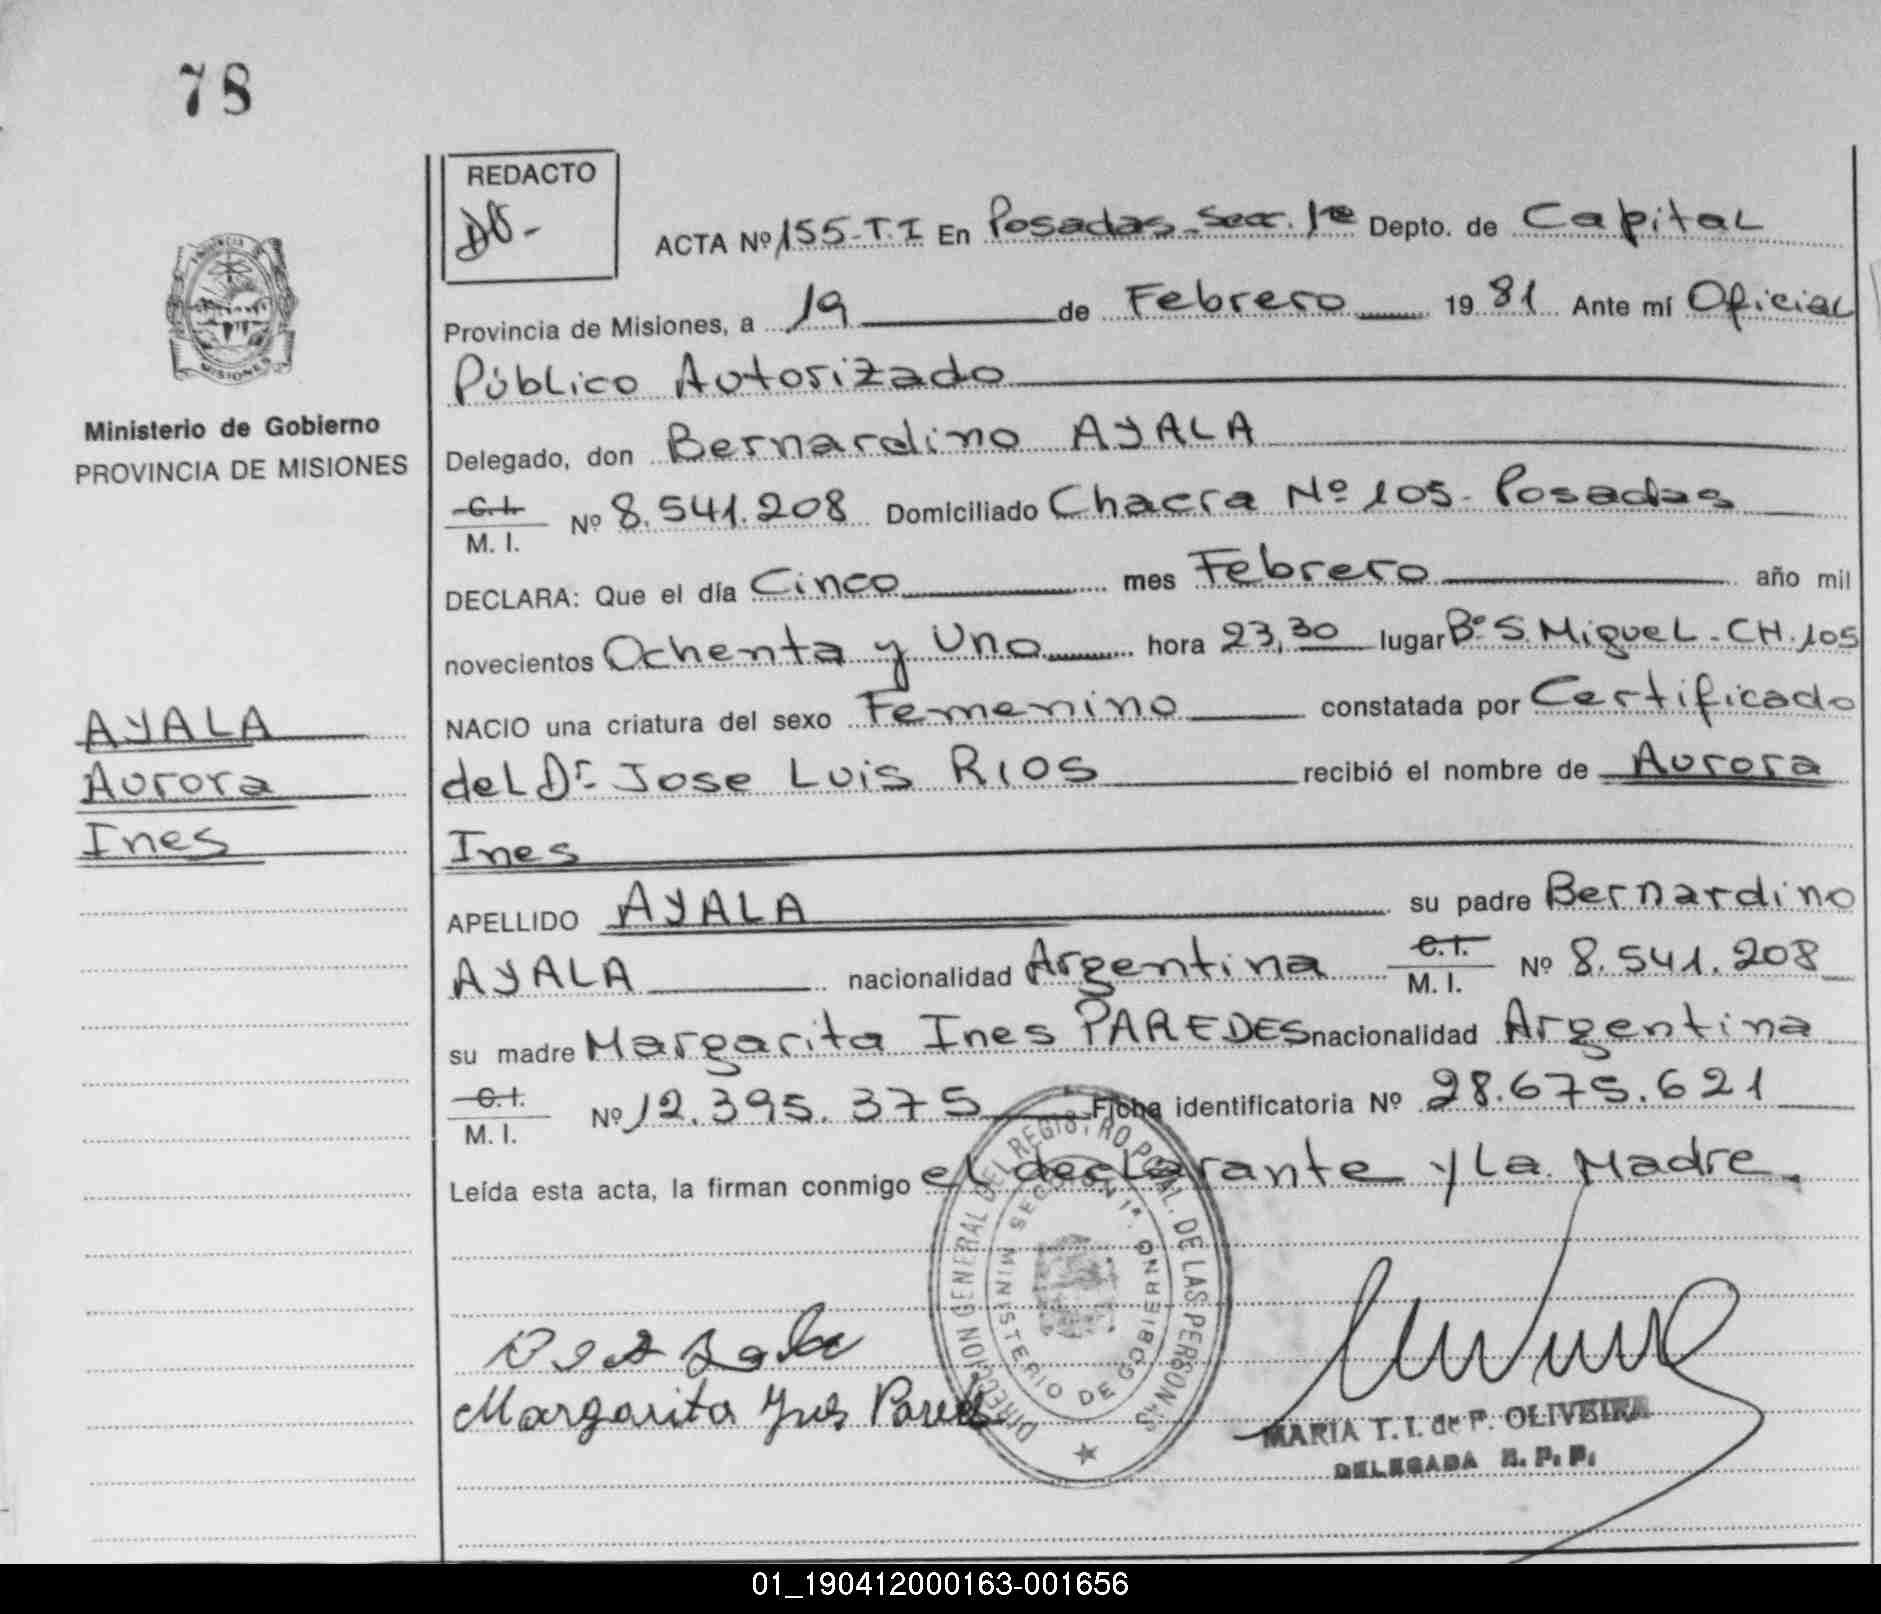 78
REDACTO
ACTA Nº 155-T.I En Posadas-Secc. 1ra Depto. de Capital
Provincia de Misiones, a 19 de Febrero 1981 Ante mí Oficial
Público Autorizado
Ministerio de Gobierno
PROVINCIA DE MISIONES
Delegado, don Bernardino AYALA
C.I.
M. I. Nº 8.541.208 Domiciliado Chacra Nº 105- Posadas
DECLARA: Que el día Cinco mes Febrero año mil
novecientos Ochenta y Uno hora 23,30 lugar Bº S. Miguel-CH.105
AYALA
Aurora
Ines
NACIO una criatura del sexo Femenino constatada por Certificado
del Dr Jose Luis RIOS recibió el nombre de Aurora
Ines
APELLIDO AYALA su padre Bernardino
AYALA nacionalidad Argentina C.I. M. I. Nº 8.541.208
su madre Margarita Ines PAREDES nacionalidad Argentina
C.I.
M. I. Nº 12.395.375 Ficha identificatoria Nº 28.675.621
Leída esta acta, la firman conmigo el declarante y La Madre.
DIRECCION GENERAL DEL REGISTRO PCIAL. DE LAS PERSONAS
SECCION 1ª. MINISTERIO DE GOBIERNO
Margarita Ines Paredes
MARIA T. I. de P. OLIVEIRA
DELEGADA R. P. P.
01_190412000163-001656